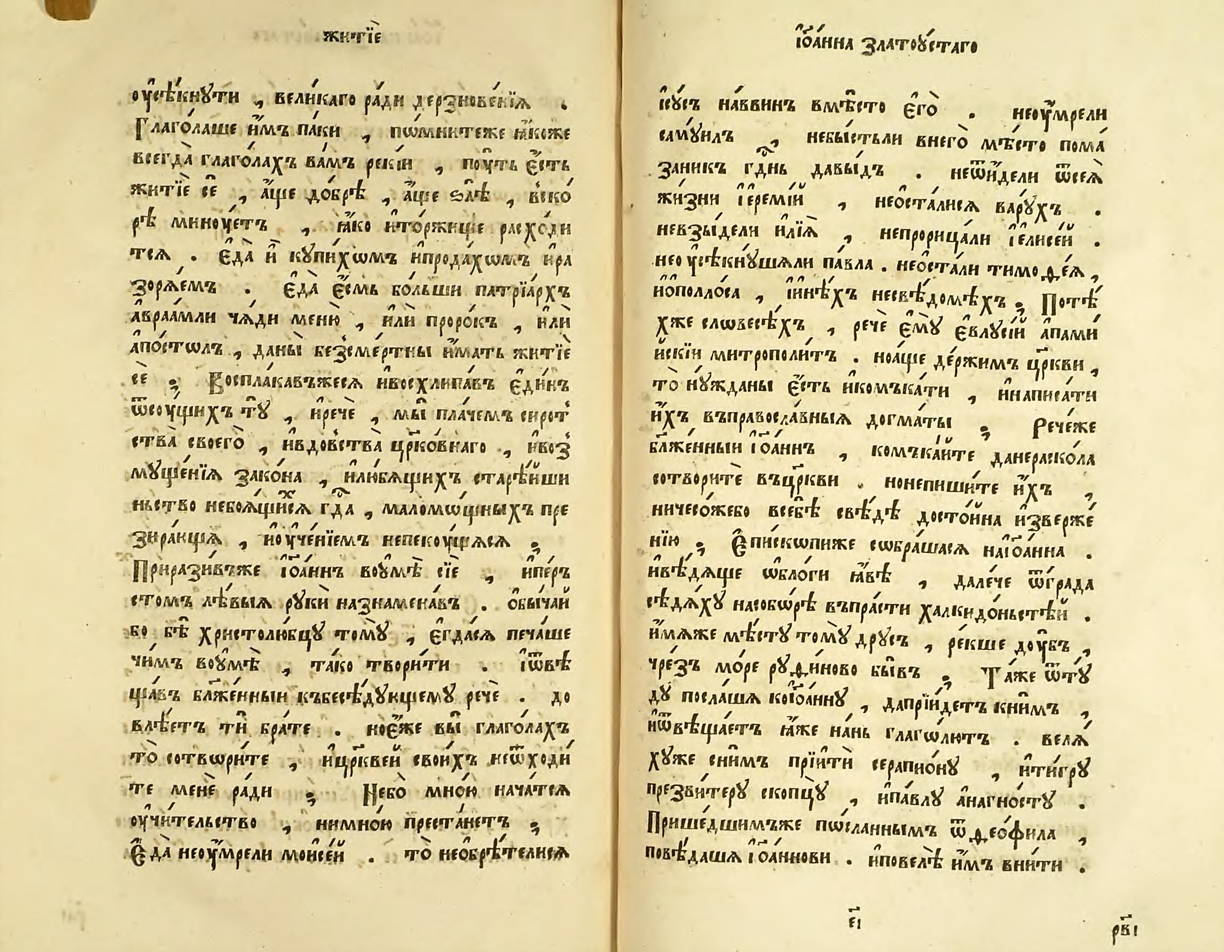 житїе
оусѣ́кнути , вели́каго ра́ди дерзнове́нїѧ .
Глаго́лаше и҆̀мъ па́ки , пѡ́мнитеже ꙗ҆́коже
всегда̀ глаго́лахъ ва́мъ рекі́й , пꙋ́ть є҆́сть
житїѐ сѐ , а҆́ще до́брѣ , а҆́ще ѕлѣ̀ , вско́
рѣ минꙋ́етъ , ꙗ҆́ко и҆то́ржище расхо́ди
тсѧ . Є҆да̀ и҆̀ кꙋпи́хѡмъ и҆прода́хѡмъ и҆ра
зорѧ́емъ . є҆да̀ є҆́смь бо́льши патрїа́рхъ
а҆враа́мли чѧ́ди меню̀ , и҆лѝ проро́къ , и҆лѝ
а҆по́столъ , даны̀ безсме́ртны и҆́мать житїѐ
сѐ ; Восплака́въжесѧ и҆восхлипа́въ є҆ди́нъ
ѿсоу́щихъ тꙋ̀ , и҆речѐ , мы̀ пла́чемъ сирот̾
ства̀ своего̀ , и҆вдо́вства цр҃ко́внаго , и҆воз̾
мꙋще́нїѧ зако́на , и҆лю́бѧщихъ старѣ́йши
ньство небоѧ́щихсѧ гд҃а , маломѡ́щныхъ пре
зира́ющѧ , и҆оуче́нїемъ непекоу́щѧсѧ ;
Приразивъже і҆ѡа́ннъ воумѣ̀ сїѐ , и҆пе́ръ
стомъ лѣ́выѧ рꙋкѝ назна́менавъ . ѻ҆бы́чай
бо бѣ̀ христолю́бцꙋ томꙋ̀ , є҆гда́сѧ печа́ше
чи́мъ воумѣ̀ , та́ко твори́ти . і҆ѿвѣ
ща́въ бл҃же́нныи къбесѣ́дꙋющемꙋ речѐ . до
влѣ́етъ тѝ бра́те . но є҆́же вы̀ глаго́лахъ
то̀ сотвѡри́те , и҆цр҃квѐй свои́хъ неѿходи
те менѐ ра́ди ; Не́бо мно́ю нача́тсѧ
оучи́тельство , нимно́ю преста́нетъ ;
Є҆да̀ неоу́мрели моисе́й . то̀ необрѣ́телисѧ
і҆ѡа́нна златоꙋ́стаго
і҆сꙋ́съ на́ввинъ вмѣ́сто є҆го̀ . неоу́мрели
самꙋи́лъ , небы́стьли внего̀ мѣ́сто пома́
заникъ гд҃нь давы́дъ . неѿи́дели ѿсеѧ̀
жи́зни і҆ереми́й , неѡста́лисѧ варꙋ́хъ .
невзы́дели и҆лїѧ̀ , непрорица́ли і҆елисе́й .
неоусѣ́кнꙋшѧли па́вла . неоста́ли тимоѳе́ѧ ,
и҆ополло́са , и҆и҆нѣ́хъ несвѣ́домѣхъ ; Потѣ́
хже словесѣ́хъ , речѐ є҆мꙋ̀ є҆влꙋсі́й а҆пами
и҆́скїи митрополи́тъ . но а҆́ще де́ржимъ цр҃кви ,
то̀ нꙋ́жданы є҆́сть и҆комъка́ти , и҆написа́ти
и҆̀хъ въправосла́вныѧ до́гматы ; Рече́же
блаже́нныи і҆ѡа́ннъ , комъка́йте данераско́ла
сотворитѐ въцр҃кви . нонепиши́те и҆̀хъ ,
ничесо́жебо всебѣ̀ свѣ́дѣ досто́йна и҆зверже́
нїю ; Є҆пи́скѡпиже сѡбра́шасѧ наі҆ѡа́нна .
и҆вѣ́дѧще ѡ҆бло́ги ꙗ҆́вѣ , дале́че ѿгра́да
сѣдѧ́хꙋ насобѡ́рѣ въпра́сти халкидо́ньстѣй .
и҆мѧ́же мѣ́стꙋ томꙋ̀ дрꙋ́съ , ре́кше доу́бъ ,
чре́зъ мо́ре рꙋфи́ново бы́въ ; Та́же ѿтꙋ́
дꙋ посла́шѧ коі҆ѡа́ннꙋ , даприи́детъ кни́мъ ,
и҆ѿвѣща́етъ ꙗ҆́же на́нь глаго́лютъ . велѧ́
хꙋже сни́мъ прїитѝ серапио́нꙋ , и҆тигрꙋ
презви́терꙋ скопцꙋ̀ , и҆па́влꙋ а҆нагно́стꙋ .
Прише́дшимъже пѡ́сланнымъ ѿѳео́фила ,
повѣ́дашѧ і҆ѡа́ннови . и҆повелѣ̀ и҆̀мъ вни́ти .
є҃і
рв҃і